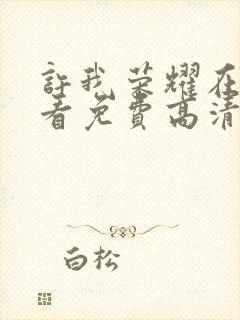 許我荣耀在
看免費高清
白松